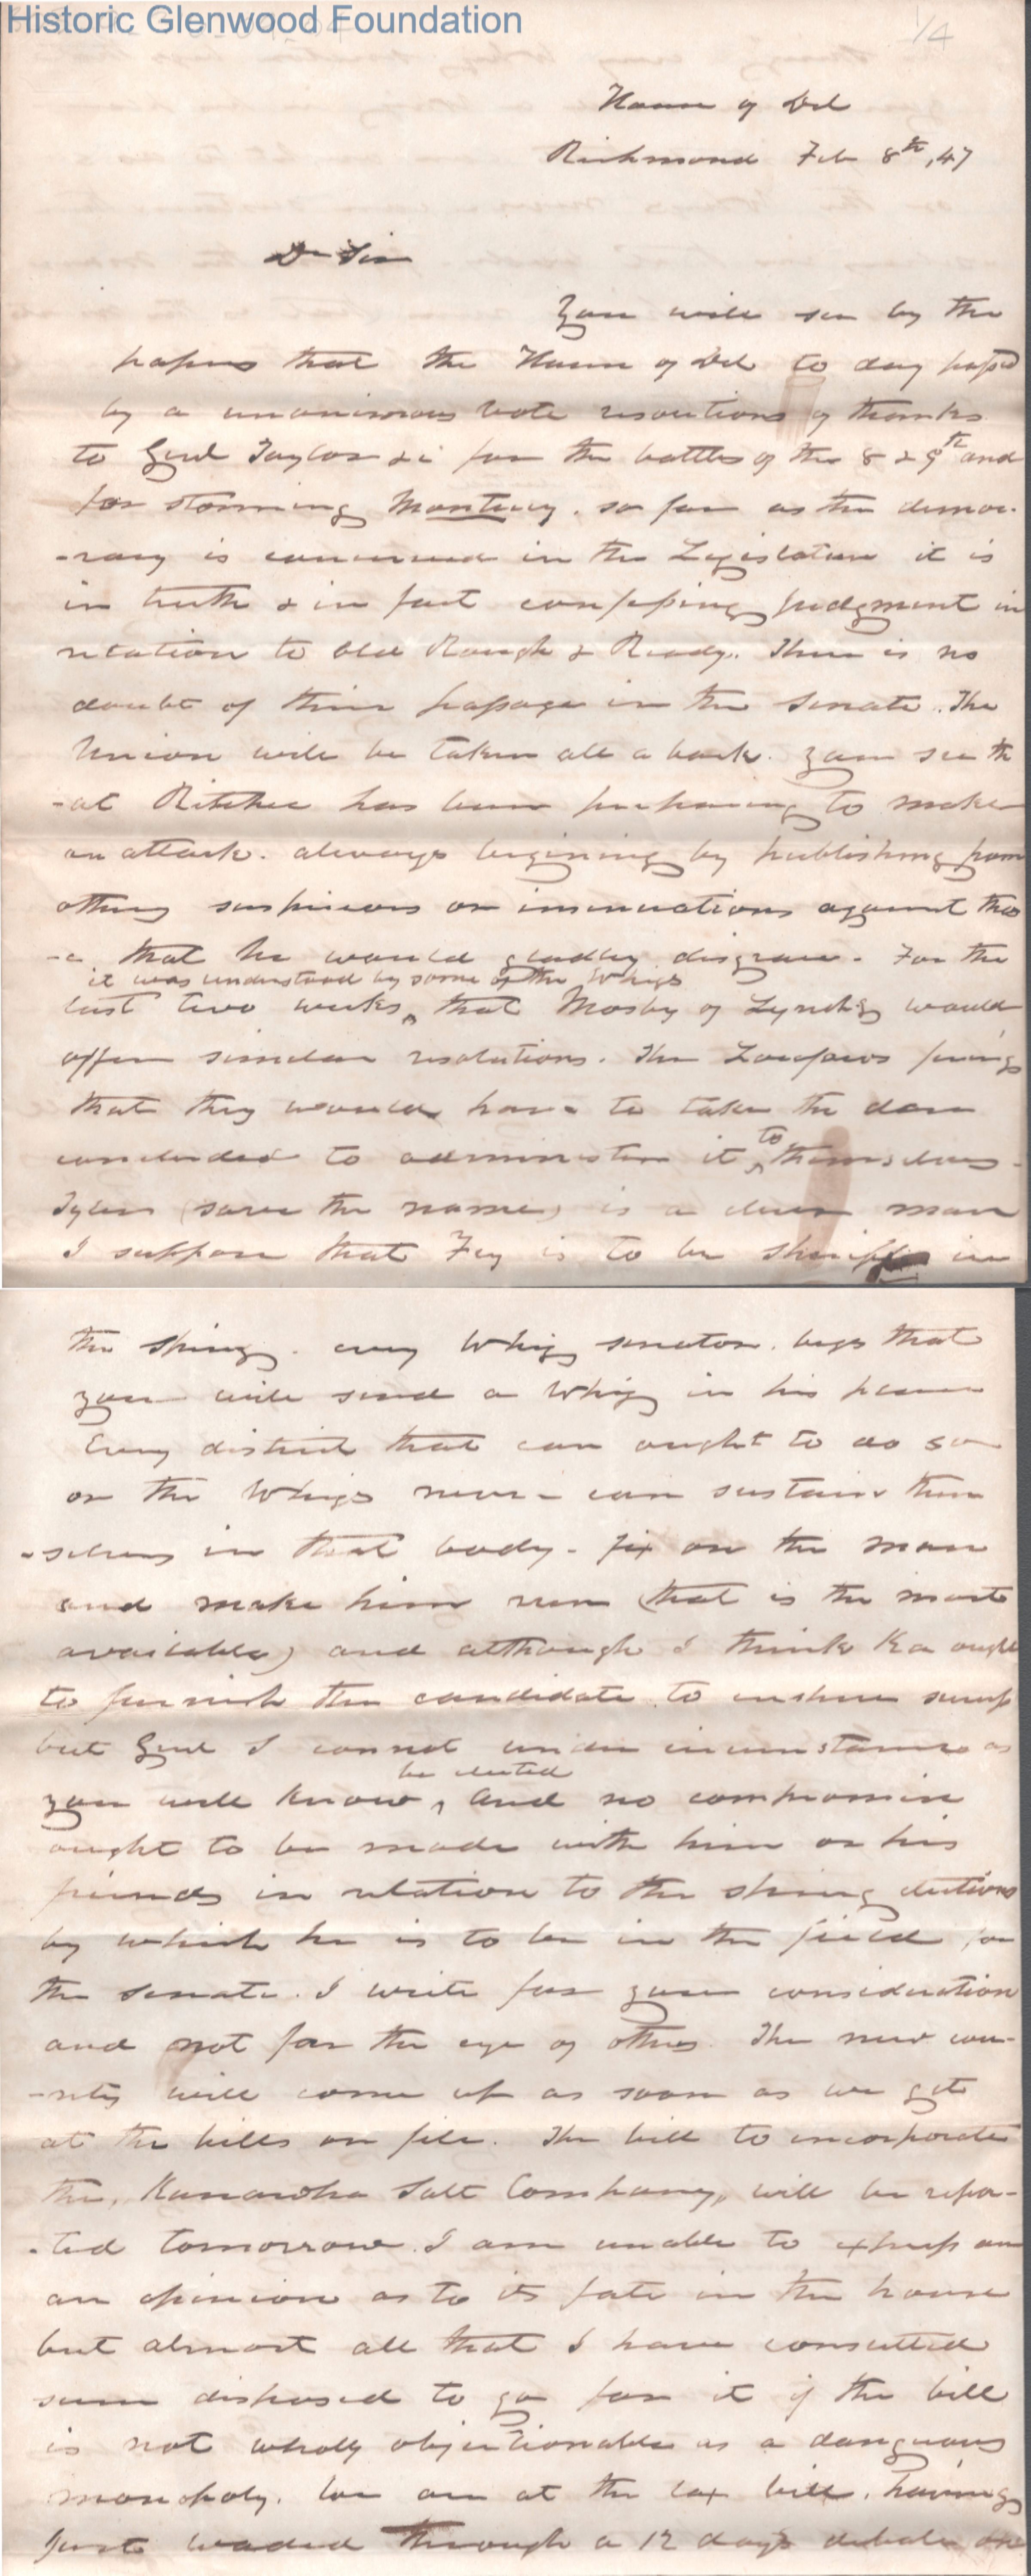 Historic Glenwood Foundation
1/4
House of Del
Richmond Feb 8th, 47
Dr Sir
You will see by the
papers that the House of Del to day passed
by a unanimous vote resolutions of thanks
to Genl Taylor &c for the battles of the 8 & 9th and
for storming Monterey. so far as the democ-
-racy is concerned in the Legislature it is
in truth & in fact confessing judgment in
relation to Old Rough & Ready. There is no
doubt of their passage in the Senate. The
Union will be taken all a back. You see th
-at Ritchie has been preparing to make
an attack. always begining by publishing from
others suspicions or insinuations against thos
-e that he would gladly disgrace. For the
it was understood by some of the Whigs
last two weeks, that Mosby of Lynchbg would
offer similar resolutions. The Locofocos
that they would have to take the dose
concluded to administer it to themselves.
Tyler (save the name) is a clever man
I suppose that Fry is to be sheriff in
the spring. every Whig senator begs that
you will send a Whig in his place
Every district that can ought to do so
or the Whigs never can sustain them
-selves in that body. fix on the man
and make him run (that is the most
available) and although I think Ka ought
to furnish the candidate to ensure success
but Genl I cannot under circumstances as
be elected
you well know, and no compromise
ought to be made with him or his
friends in relation to the spring elections
by which he is to be in the field for
the senate. I write for your consideration
and not for the eye of others. The new cou-
-nty will come up as soon as we get
at the bills on file. The bill to incorporate
the Kanawha Salt Company, will be repor-
-ted tomorrow. I am unable to express an
an opinion as to its fate in the house
but almost all that I have consulted
seem disposed to go for it if the bill
is not wholly objectionable as a dangerous
monopoly. We are at the tax bill, having
just waded through a 12 days debate on